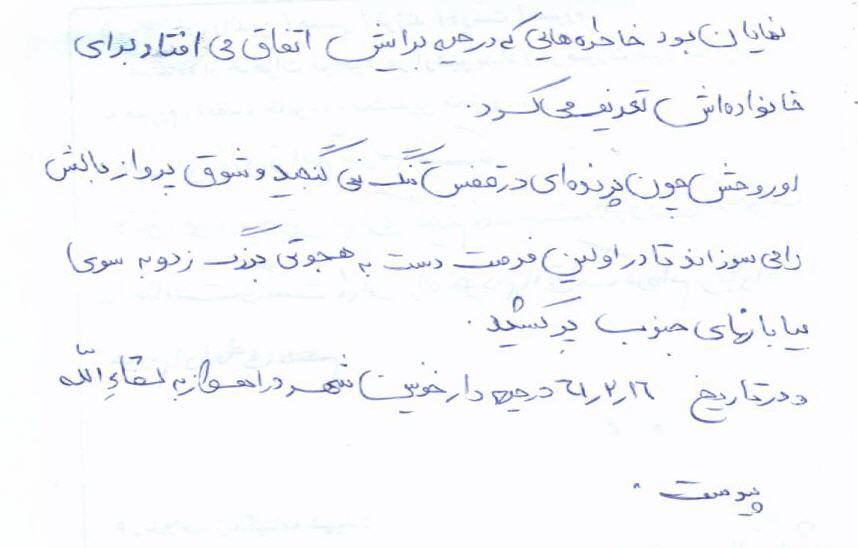 نمایان بود خاطره‌هایی که در جبهه برایش اتفاق می افتاد برای
خانواده‌اش تعریف می کرد.
او روحش چون پرنده‌ای در قفس تنگ نمی گنجید و شوق پرواز بالش
را می سوزاند تا در اولین فرصت دست به هجرتی بزرگ زد و به سوی
بیابانهای جنوب پر کشید.
و در تاریخ ۶۱٫۲٫۱۶ در جبهه دارخوین شهر در اهواز به لقاءِ اللّه
پیوست.